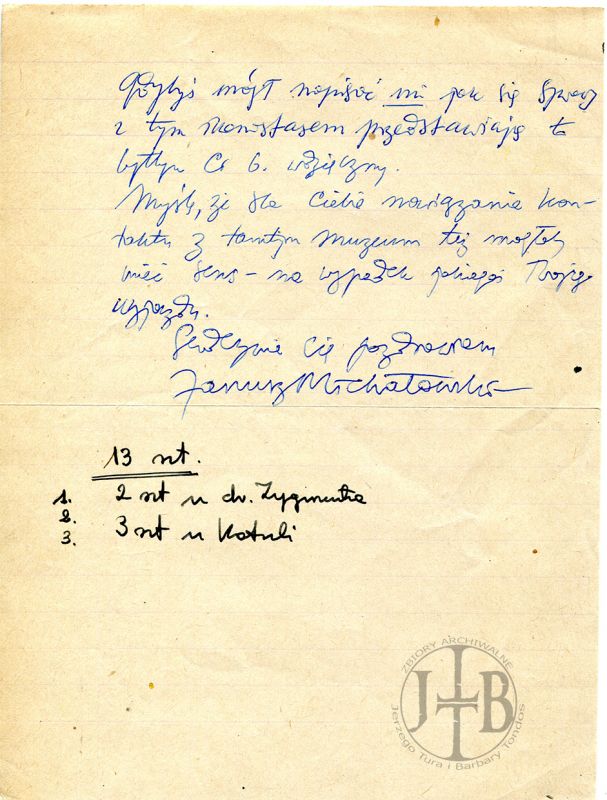 Gdybyś mógł napisać mi jak się sprawy
z tym ikonostasem przedstawiają to
byłbym Ci b. wdzięczny.
Myślę, że dla Ciebie nawiązanie kon-
taktu z tamtym muzeum też mogłoby
mieć sens - na wypadek jakiegoś Twojego
wyjazdu.
Serdecznie Cię pozdrawiam
Janusz Michałowski
13 szt.
1. 2 szt u dr. Zygmunta
2.
3. 3 szt u Kotuli
ZBIORY ARCHIWALNE
JTB
Jerzego Tura i Barbary Tondos